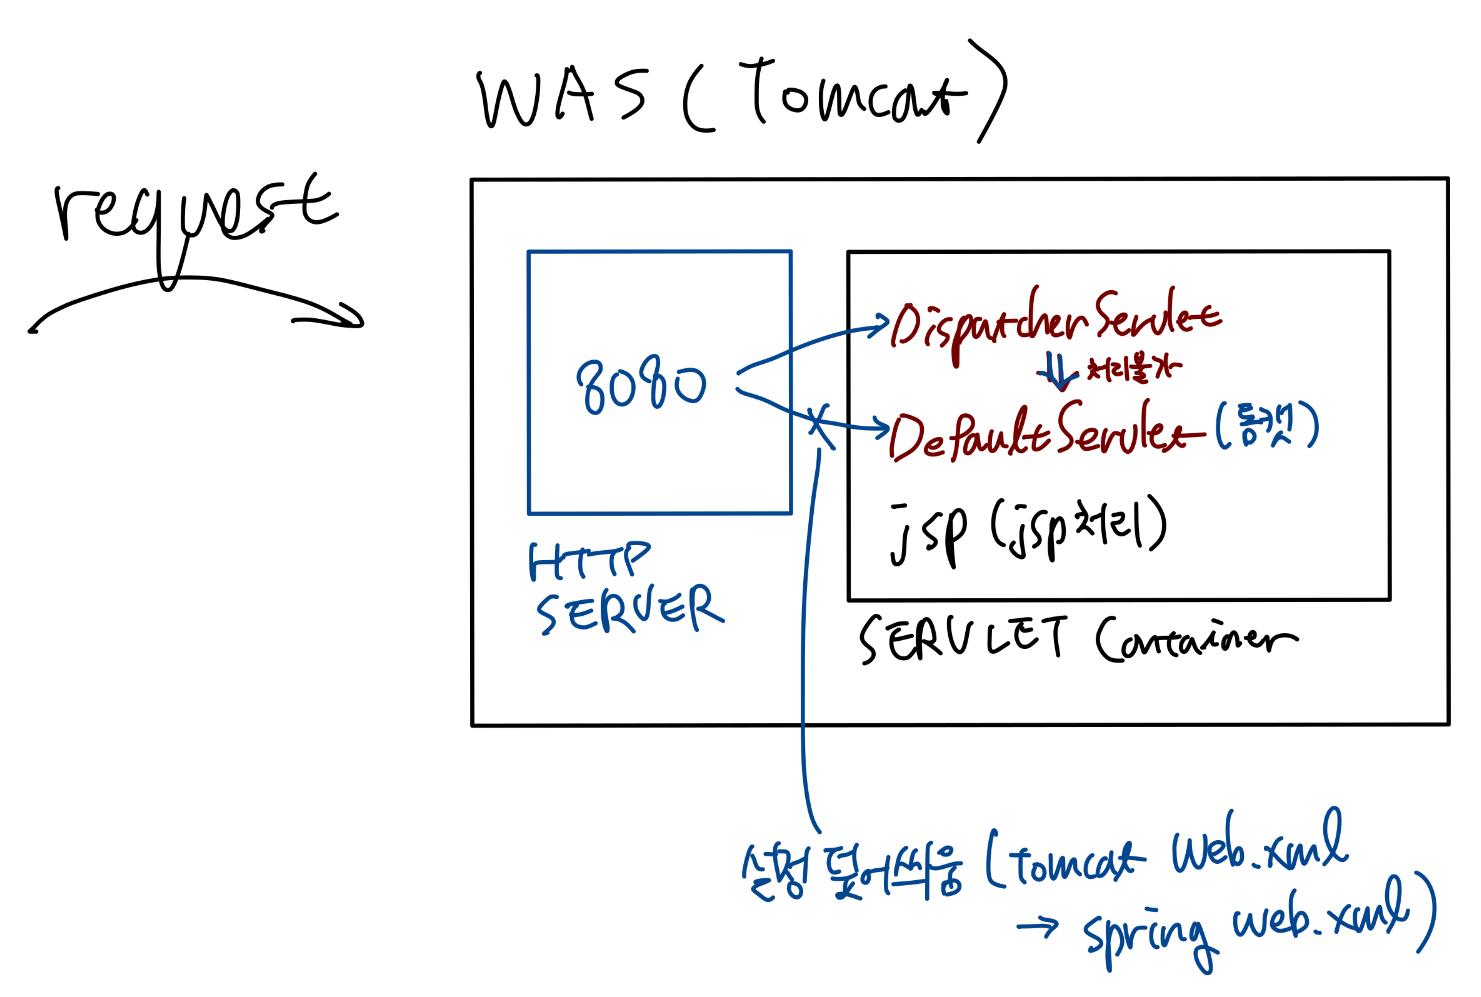 WAS (Tomcat)
request
8080
HTTP
SERVER
DispatcherServlet
처리불가
DefaultServlet (톰캣)
jsp (jsp처리)
SERVLET Container
설정 덮어씌움 (tomcat web.xml
→ spring web.xml)